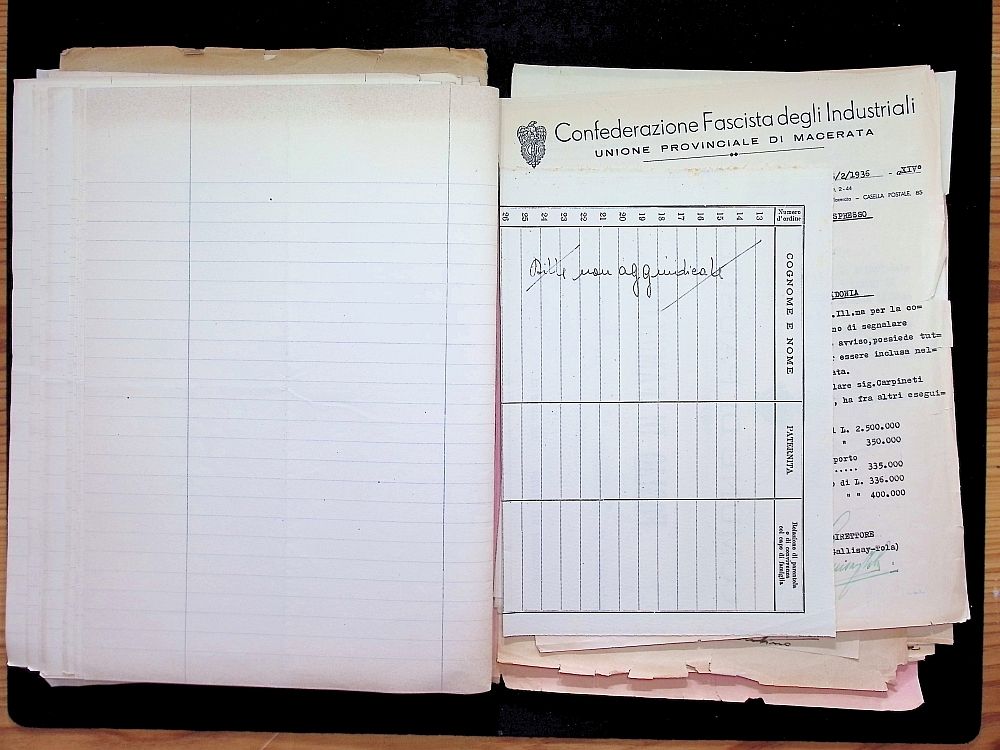 Confederazione Fascista degli Industriali
UNIONE PROVINCIALE DI MACERATA
/2/1936 - XIV°
2-44
CASELLA POSTALE, 85
SPRESSO
DONIA
.Ill.ma per la co=
no di segnalare
avviso,possiede tut=
essere inclusa nel=
ata.
lare sig.Carpineti
, ha fra altri esegui=
L. 2.500.000
" 350.000
porto
..... 335.000
di L. 336.000
" " 400.000
DIRETTORE
Gallisay-Pola)
Numero d'ordine
13
14
15
16
17
18
19
20
21
22
23
24
25
26
COGNOME E NOME
Ditte non aggiudicate
PATERNITÀ
Relazione di parentela
o di convivenza
col capo di famiglia